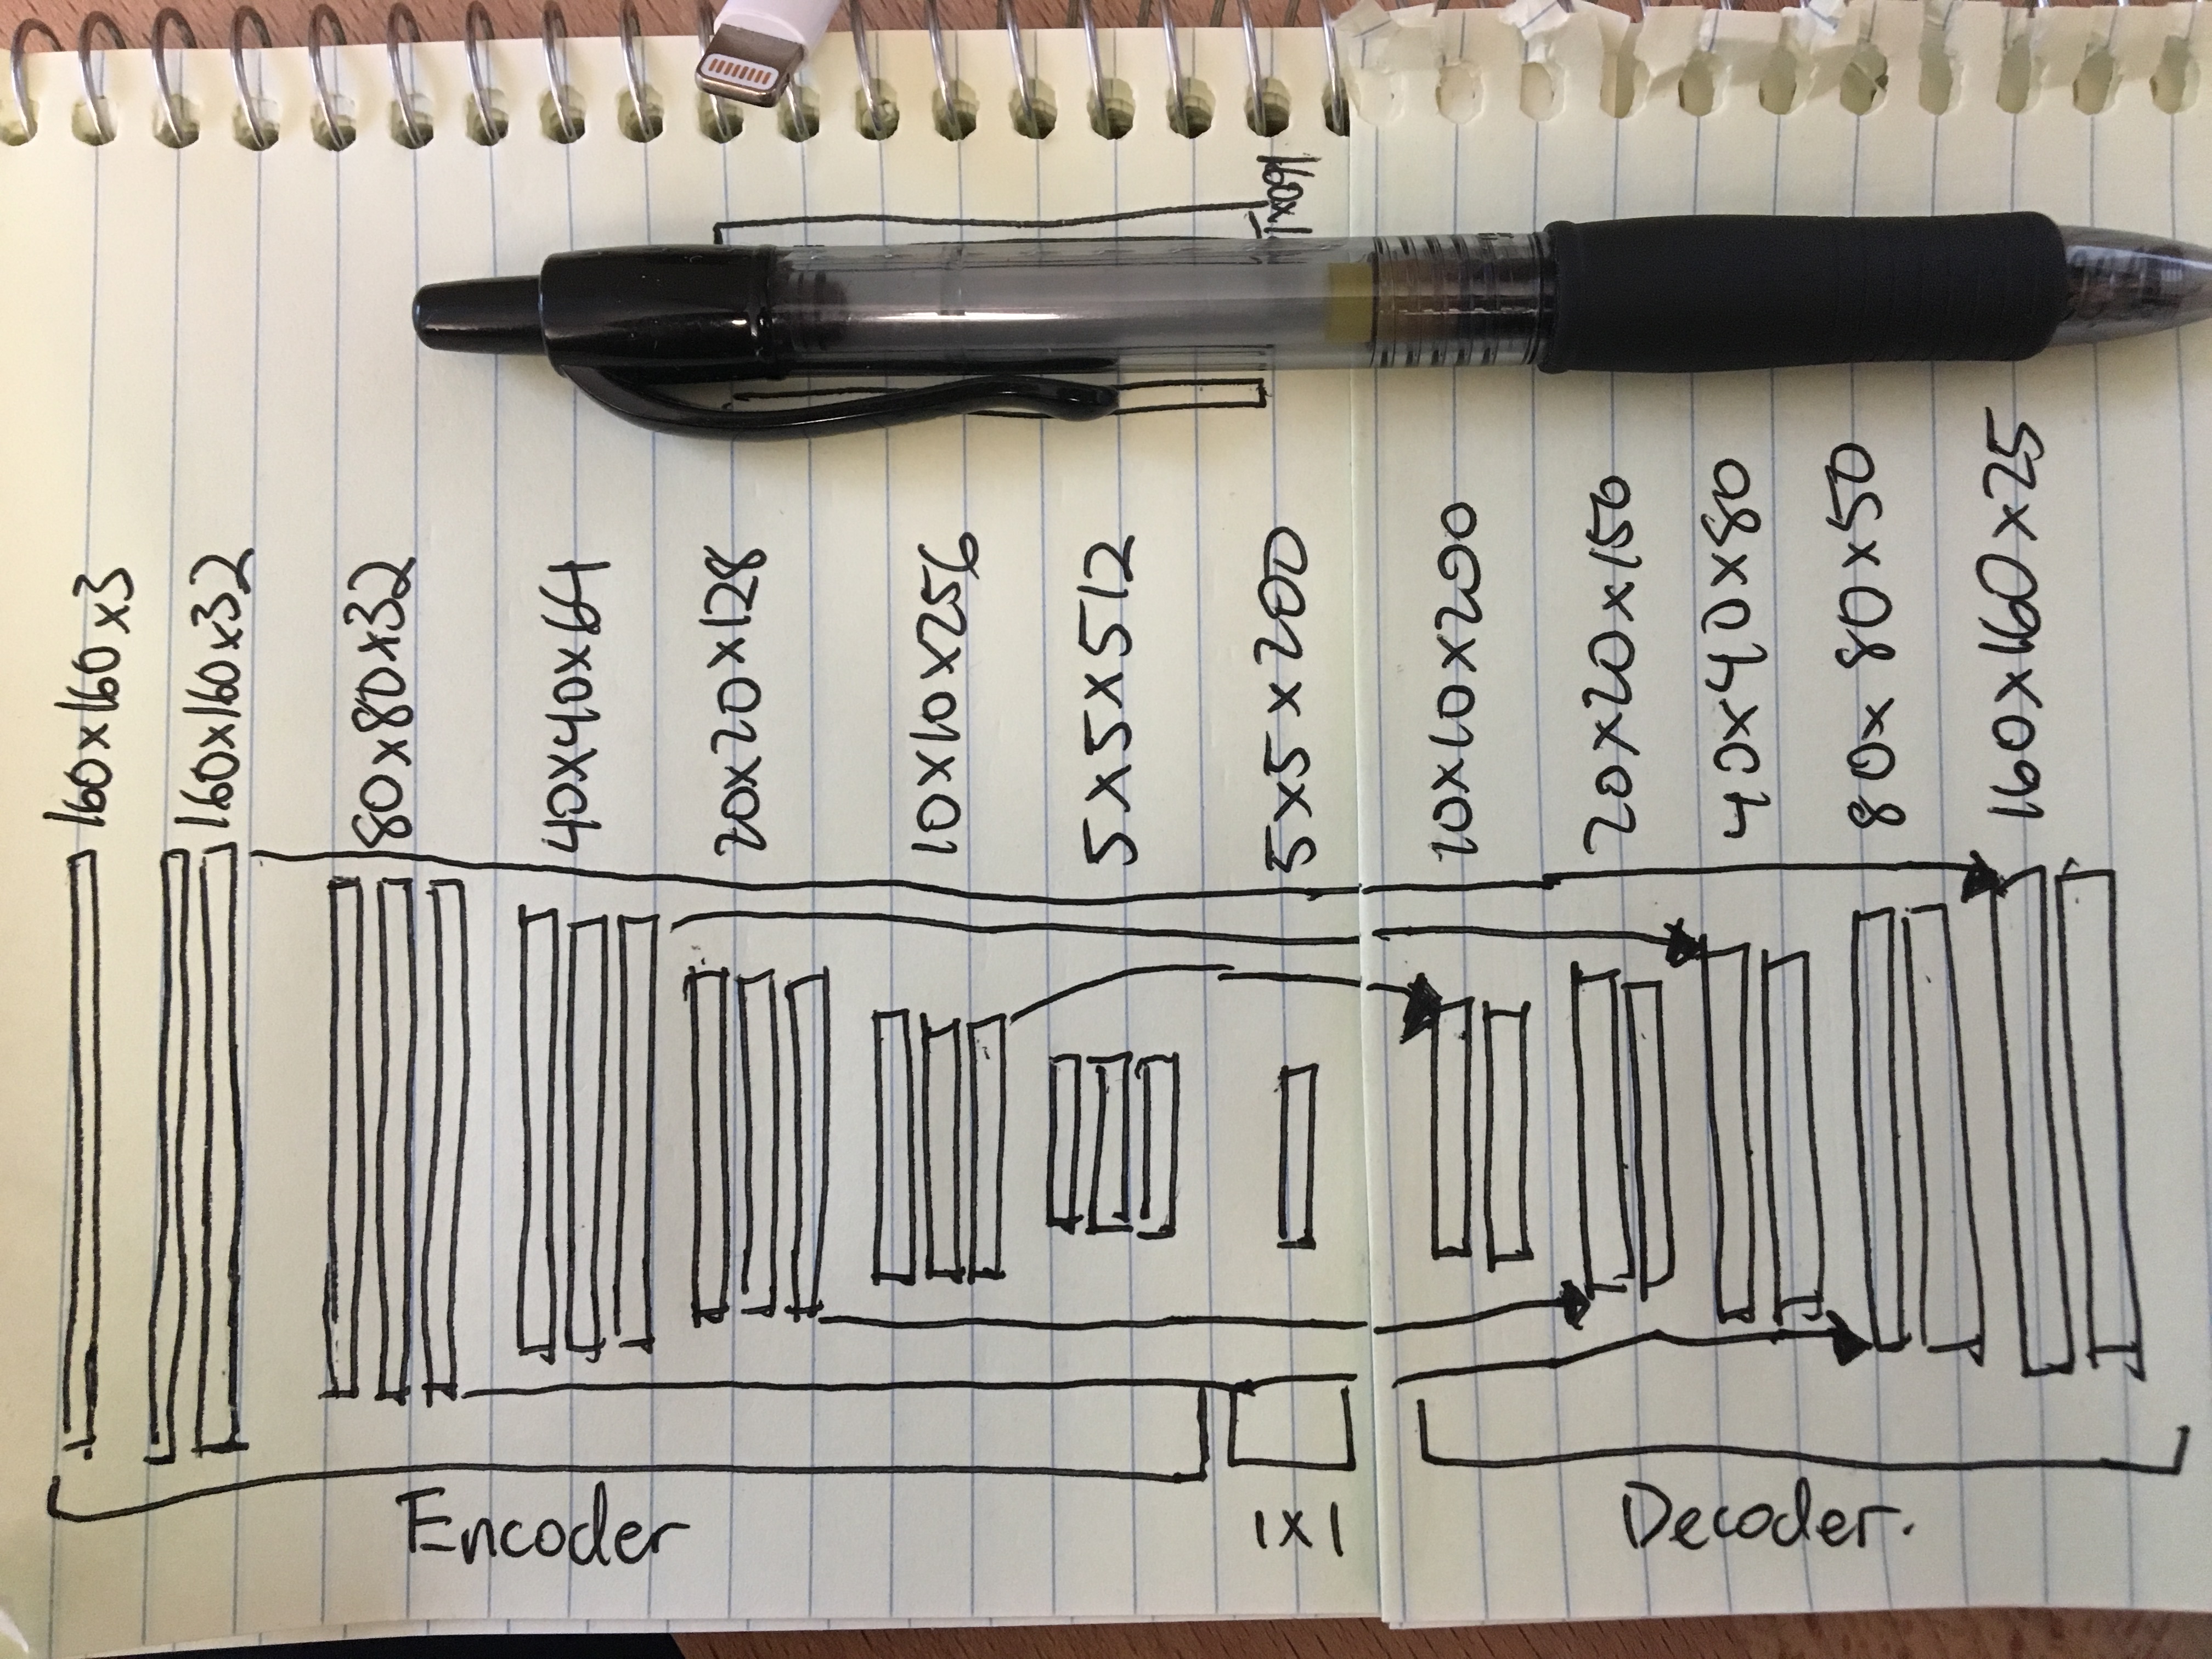 160x160x3
160x160x32
80x80x32
40x40x64
20x20x128
10x10x256
5x5x512
5x5x200
10x10x200
20x20x150
40x40x80
80x80x50
160x160x25
Encoder
1x1
Decoder.